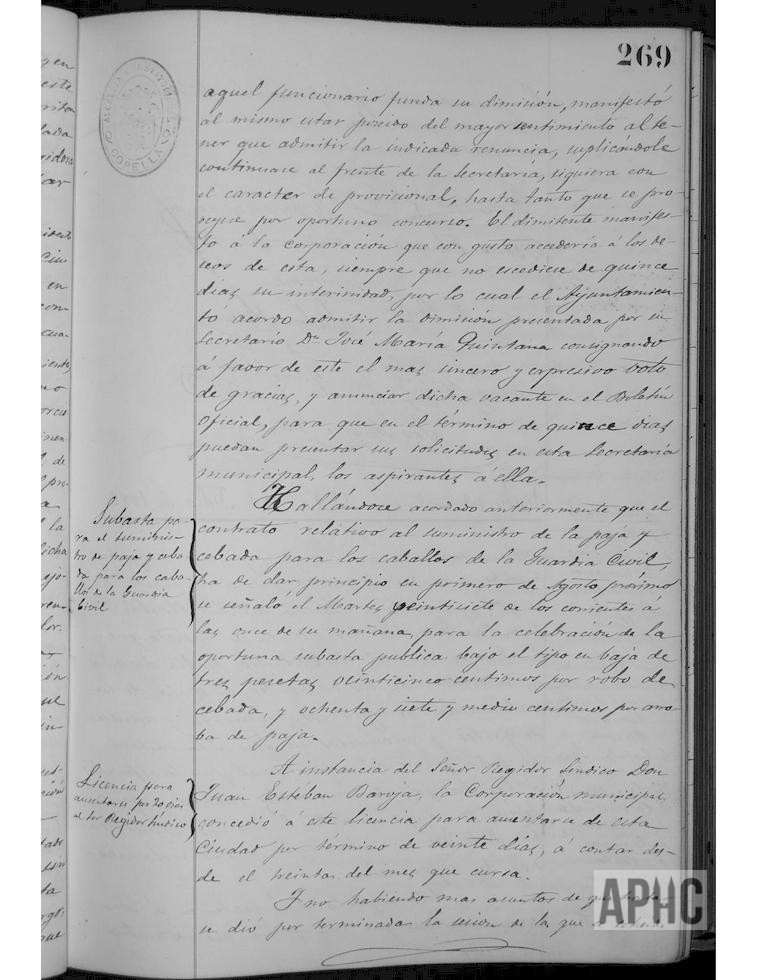 269
ALCALDIA CONSTITUCIONAL
CORELLA
aquel funcionario funda su dimisión, manifestó
al mismo estar poseido del mayor sentimiento al te-
ner que admitir la indicada renuncia, suplicandole
continuase al frente de la Secretaría, siquiera con
el caracter de provisional, hasta tanto que se pro-
veyese por oportuno concurso. El dimitente manifes-
tó á la Corporación que con gusto accedería á los de-
seos de esta, siempre que no escediese de quince
dias su interinidad, por lo cual el Ayuntamien-
to acordo admitir la dimisión presentada por su
Secretario Dn José María Quintana consignando
á favor de este el mas sincero y expresivo voto
de gracias, y anunciar dicha vacante en el Boletín
Oficial, para que en el término de quince dias
puedan presentar sus solicitudes en esta Secretaría
municipal, los aspirantes á ella.
Subasta pa-
ra el suminis-
tro de paja y ceba-
da para los caba-
llos de la Guardia
Civil
Hallándose acordado anteriormente que el
contrato relativo al suministro de la paja y
cebada para los caballos de la Guardia Civil,
ha de dar principio en primero de Agosto próximo
se señaló el Martes veintisiete de los corrientes á
las once de su mañana, para la celebración de la
oportuna subasta publica bajo el tipo en baja de
tres pesetas veinticinco centimos por robo de
cebada, y ochenta y siete y medio centimos por arro-
ba de paja.
Licencia para
ausentarse por 20 dias
al Sor Regidor Síndico
A instancia del Señor Regidor Síndico Don
Juan Esteban Baroja, la Corporación municipal,
concedió á este licencia para ausentarse de esta
Ciudad por término de veinte días, á contar des-
de el treinta del mes que cursa.
Y no habiendo mas asuntos de que
se dió por terminada la sesion de la que
APHC